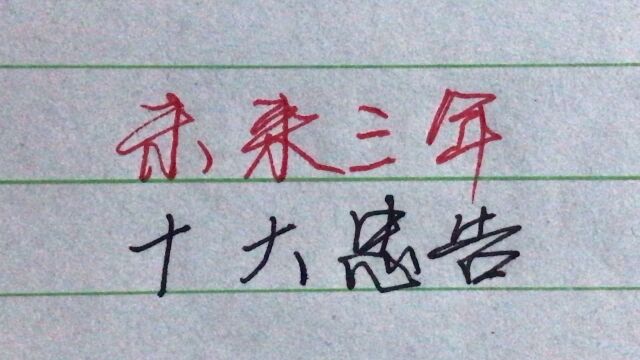 未来三年
十大忠告